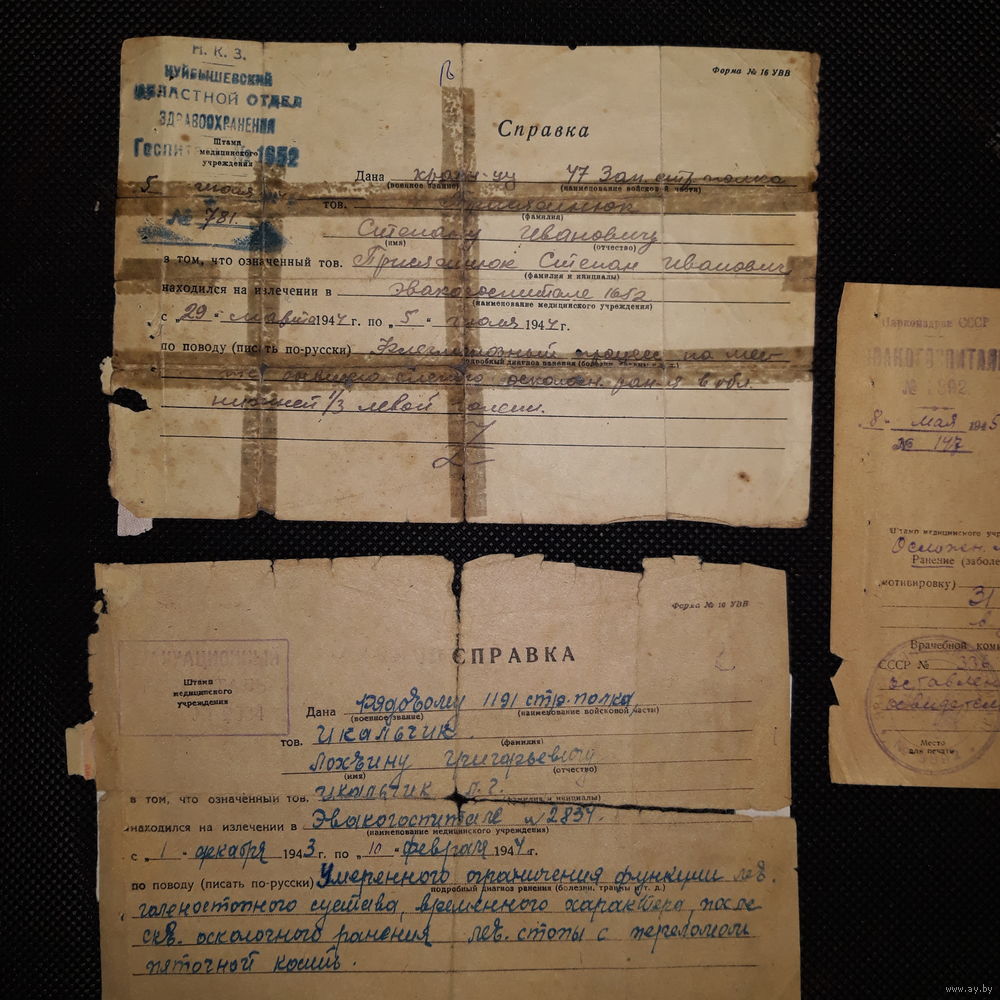 Н. К. З.
КУЙБЫШЕВСКИЙ
ОБЛАСТНОЙ ОТДЕЛ
ЗДРАВООХРАНЕНИЯ
1652
Штамп
медицинского
учреждения
5 июля
№ 781.
Форма № 16 УВВ
Справка
Дана 47 Зап. стр. полка
(военное звание) (наименование войсковой части)
тов.
(фамилия)
Степану Ивановичу
(имя) (отчество)
в том, что означенный тов. Присяжнюк Степан Иванович
(фамилия и инициалы)
находился на излечении в Эвакогоспитале 1652
(наименование медицинского учреждения)
с „29" марта 1944 г. по „5" июля 1944 г.
по поводу (писать по-русски) процесс на мес-
подробный диагноз ранения (болезни,
бывшего слепого осколоч. ранения в обл.
нижней 1/3 левой голени.
Форма № 16 УВВ
СПРАВКА
Штамп
медицинского
учреждения
Дана рядовому 1191 стр. полка
(военное звание) (наименование войсковой части)
тов. Икальчик.
(фамилия)
Григорьевичу
(имя) (отчество)
в том, что означенный тов. Икальчик Л. Г.
(фамилия и инициалы)
находился на излечении в Эвакогоспитале № 2834.
(наименование медицинского учреждения)
с „1" декабря 1943 г. по „10" февраля 1944 г.
по поводу (писать по-русски) Умеренного ограничения функции лев.
подробный диагноз ранения (болезни, травмы и т. д.)
голеностопного сустава, временного характера, после
скв. осколочного ранения лев. стопы с переломом
пяточной кости.
Наркомздрав СССР
№ 1892
8 " мая 1945
№ 147
Штамп медицинского учр
Осложен.
Ранение (заболе
мотивировку)
31
в
Врачебной коми
СССР № 336
оставлен
освидетел
Место
для печати
www.ay.by